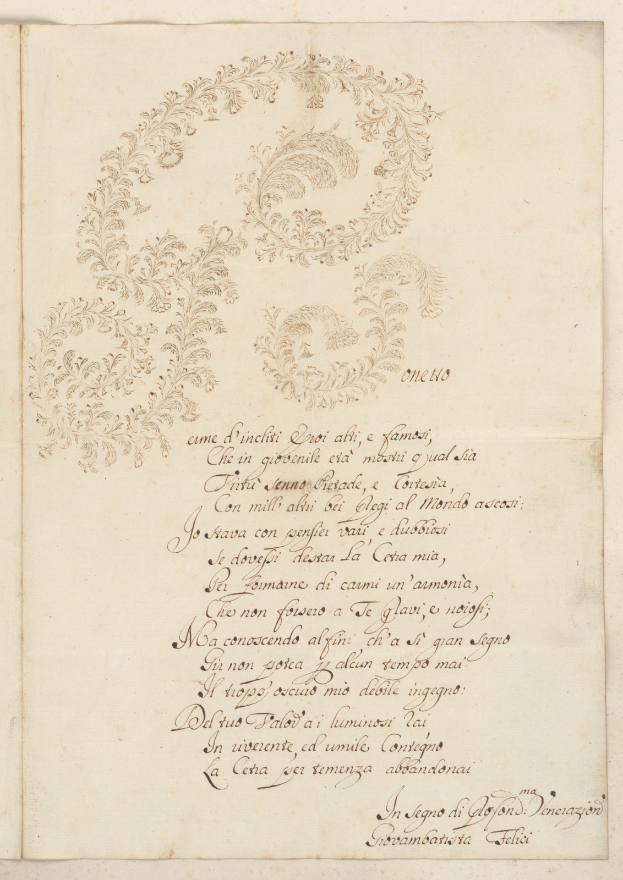 Sonetto
Seme d'incliti Eroi alti, e famosi,
Che in giovenile età mostri qual sia
Virtù Senno Pietade, e Cortesia,
Con mill'altri bei Pregi al Mondo ascosi:
Io stava con pensier vari, e dubbiosi
Se dovessi destar La Cetra mia,
Per formarne di carmi un'armonìa,
Che non forsero a Te Gravi, e noiosi;
Ma conoscendo al fini ch'a sì gran segno
Gir non potea p alcun tempo mai
Il tropp'oscuro mio debile ingegno:
Del tuo Valor' a i luminosi Rai
In riverente, ed umile Contegno
La Cetra per temenza abbandonai
In segno di Profond:ma Venerazion
Giovambatista Felici